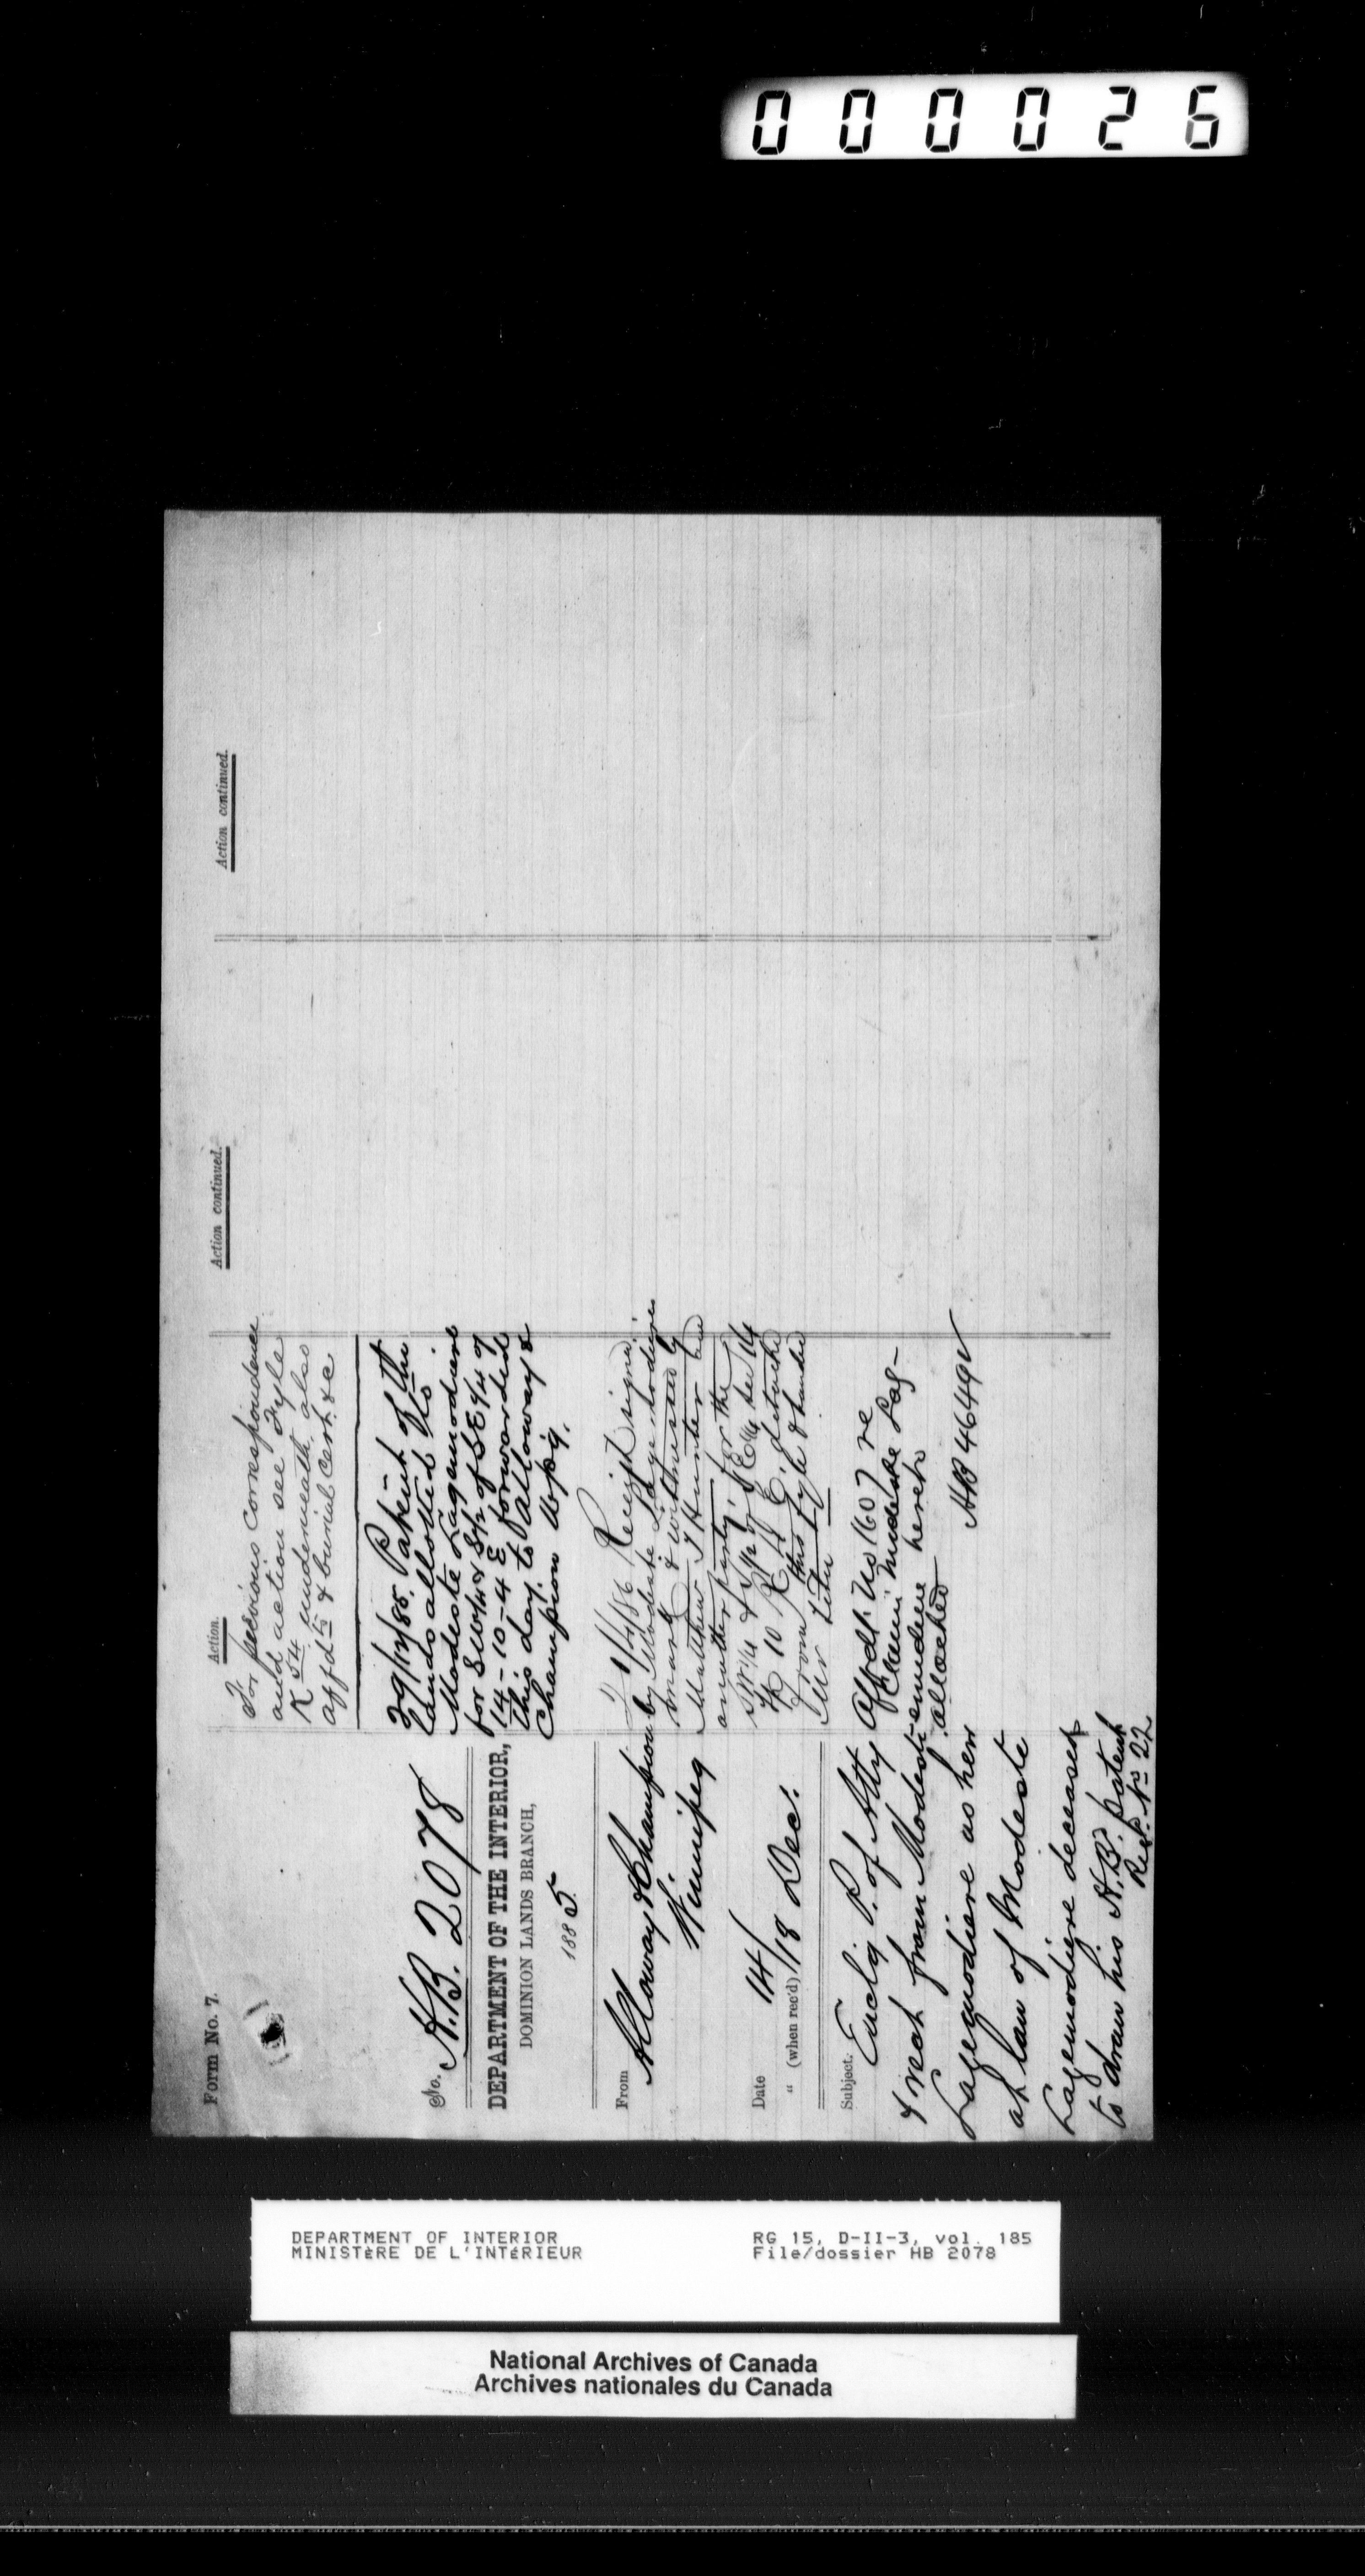 000026
Form No. 7.
No. H.B. 2078
DEPARTMENT OF THE INTERIOR,
DOMINION LANDS BRANCH,
1885
From Alloway & Champion
Winnipeg
Date 14/
" (when rec'd) 18 Dec.
Subject. Enclg P. of Atty
& rect from Modeste
Lagemodiere as heir
at law of Modeste
Lagemodiere deceased
to draw his H.B. patent
Ret. No 22
Action.
For previous correspondence
and action see Fyle
K 54 underneath also
affdts & burial Cert. &c
29/12/85. Patent of the
lands allotted to
Modeste Lagemodiere
for SW1/4 & S1/2 of SE1/4 of
14-10-4 E forwarded
this day to Alloway &
Champion Wpg.
1/4/86 Receipt signed
by Modeste
mark & witnessed by
Matthew J Hunter and
another party, for the
SW1/4 & S1/2 of SE1/4 Sec 14
10 R 4 E. detached
from this fyle & handed
Mr
Affdt. No 1607 re
claim Modeste Lag-
emodiere hereto
attached
HB 4649
Action continued.
Action continued.
DEPARTMENT OF INTERIOR
MINISTÈRE DE L'INTÉRIEUR
RG 15, D-II-3, vol. 185
File/dossier HB 2078
National Archives of Canada
Archives nationales du Canada